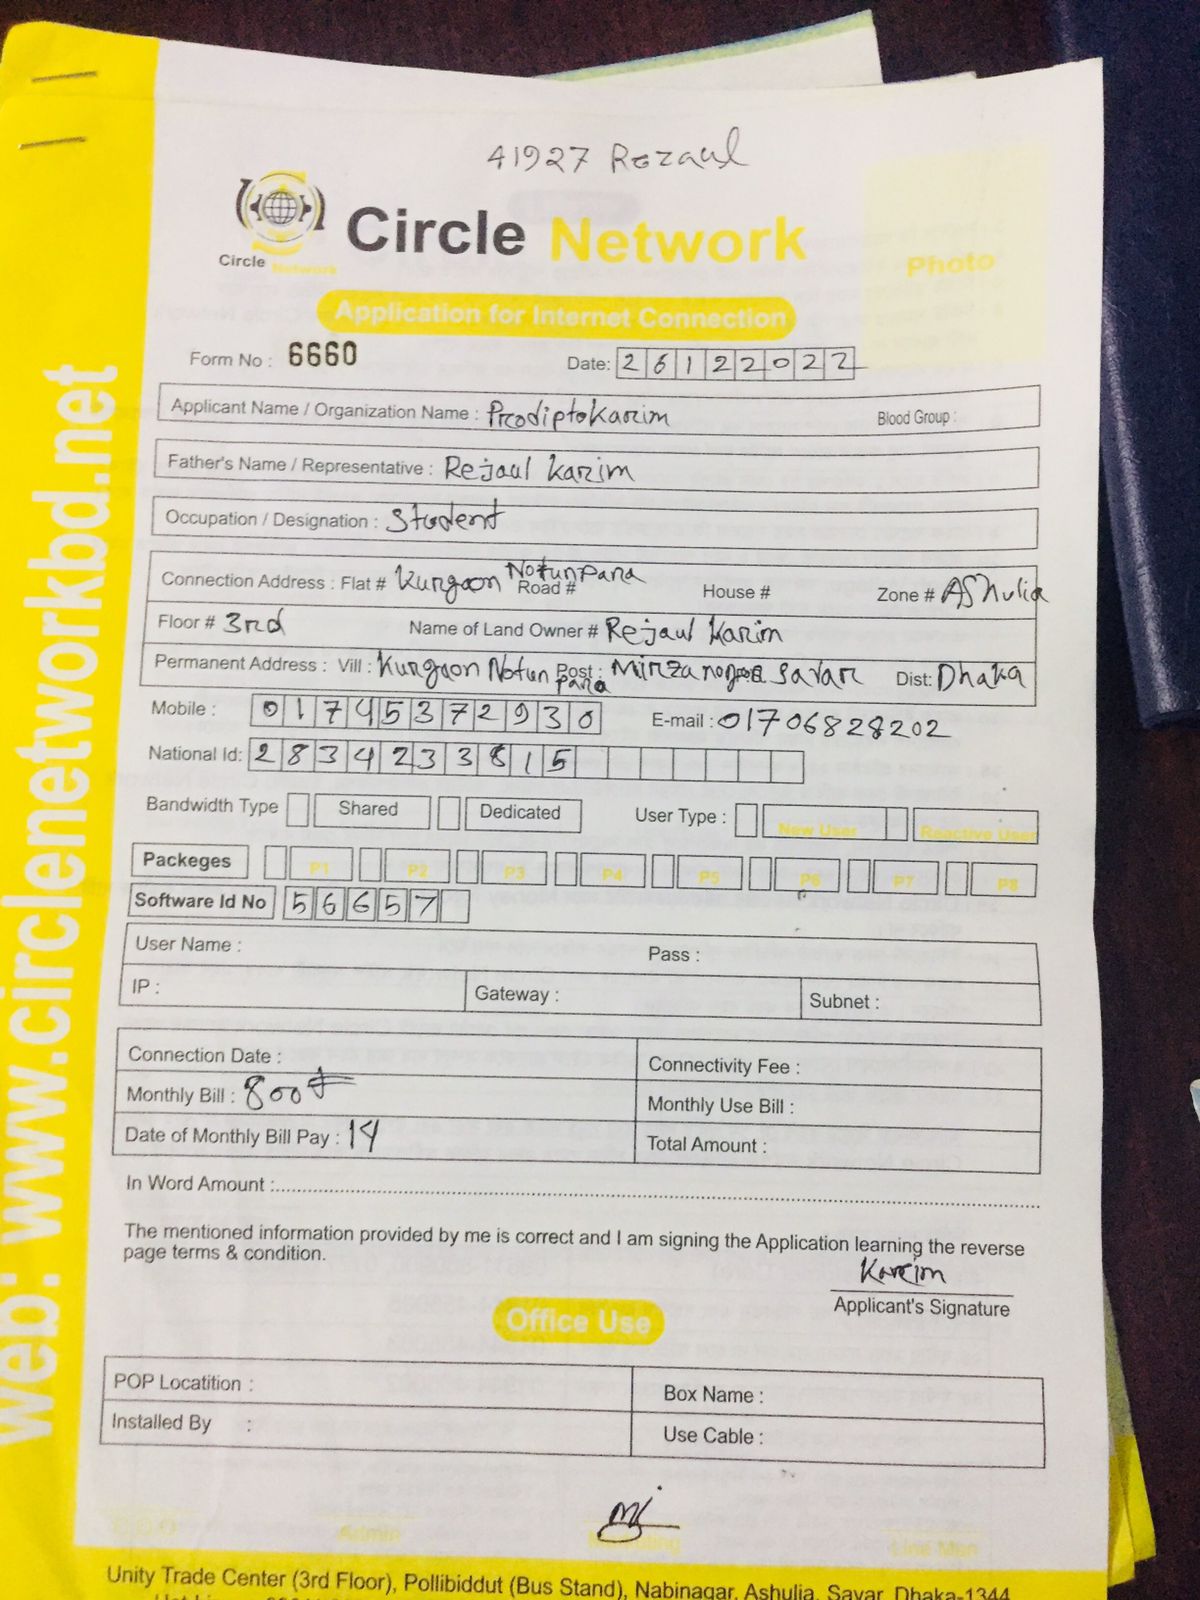 41927 Rezaul
Circle Network
Circle Network
Photo
Application for Internet Connection
Form No : 6660 Date: 26122022
Applicant Name / Organization Name : Prodipto Karim Blood Group :
Father's Name / Representative : Rejaul Karim
Occupation / Designation : Student
Connection Address : Flat # Kurgaon Notunpara Road # House # Zone # AShulia
Floor # 3rd Name of Land Owner # Rejaul Karim
Permanent Address : Vill : Kurgaon Notun para Post : Savar Dist: Dhaka
Mobile : 01745372930 E-mail : 01706828202
National Id: 2834233815
Bandwidth Type Shared Dedicated User Type : New User Reactive User
Packeges P1 P2 P3 P4 P5 P6 P7 P8
Software Id No 56657
User Name : Pass :
IP : Gateway : Subnet :
Connection Date : Connectivity Fee :
Monthly Bill : 800 Monthly Use Bill :
Date of Monthly Bill Pay : 14 Total Amount :
In Word Amount :
The mentioned information provided by me is correct and I am signing the Application learning the reverse
page terms & condition.
Karim
Applicant's Signature
Office Use
POP Locatition : Box Name :
Installed By : Use Cable :
Admin Line Man
Unity Trade Center (3rd Floor), Pollibiddut (Bus Stand), Nabinagar, Ashulia, Savar, Dhaka-1344
web: www.circlenetworkbd.net